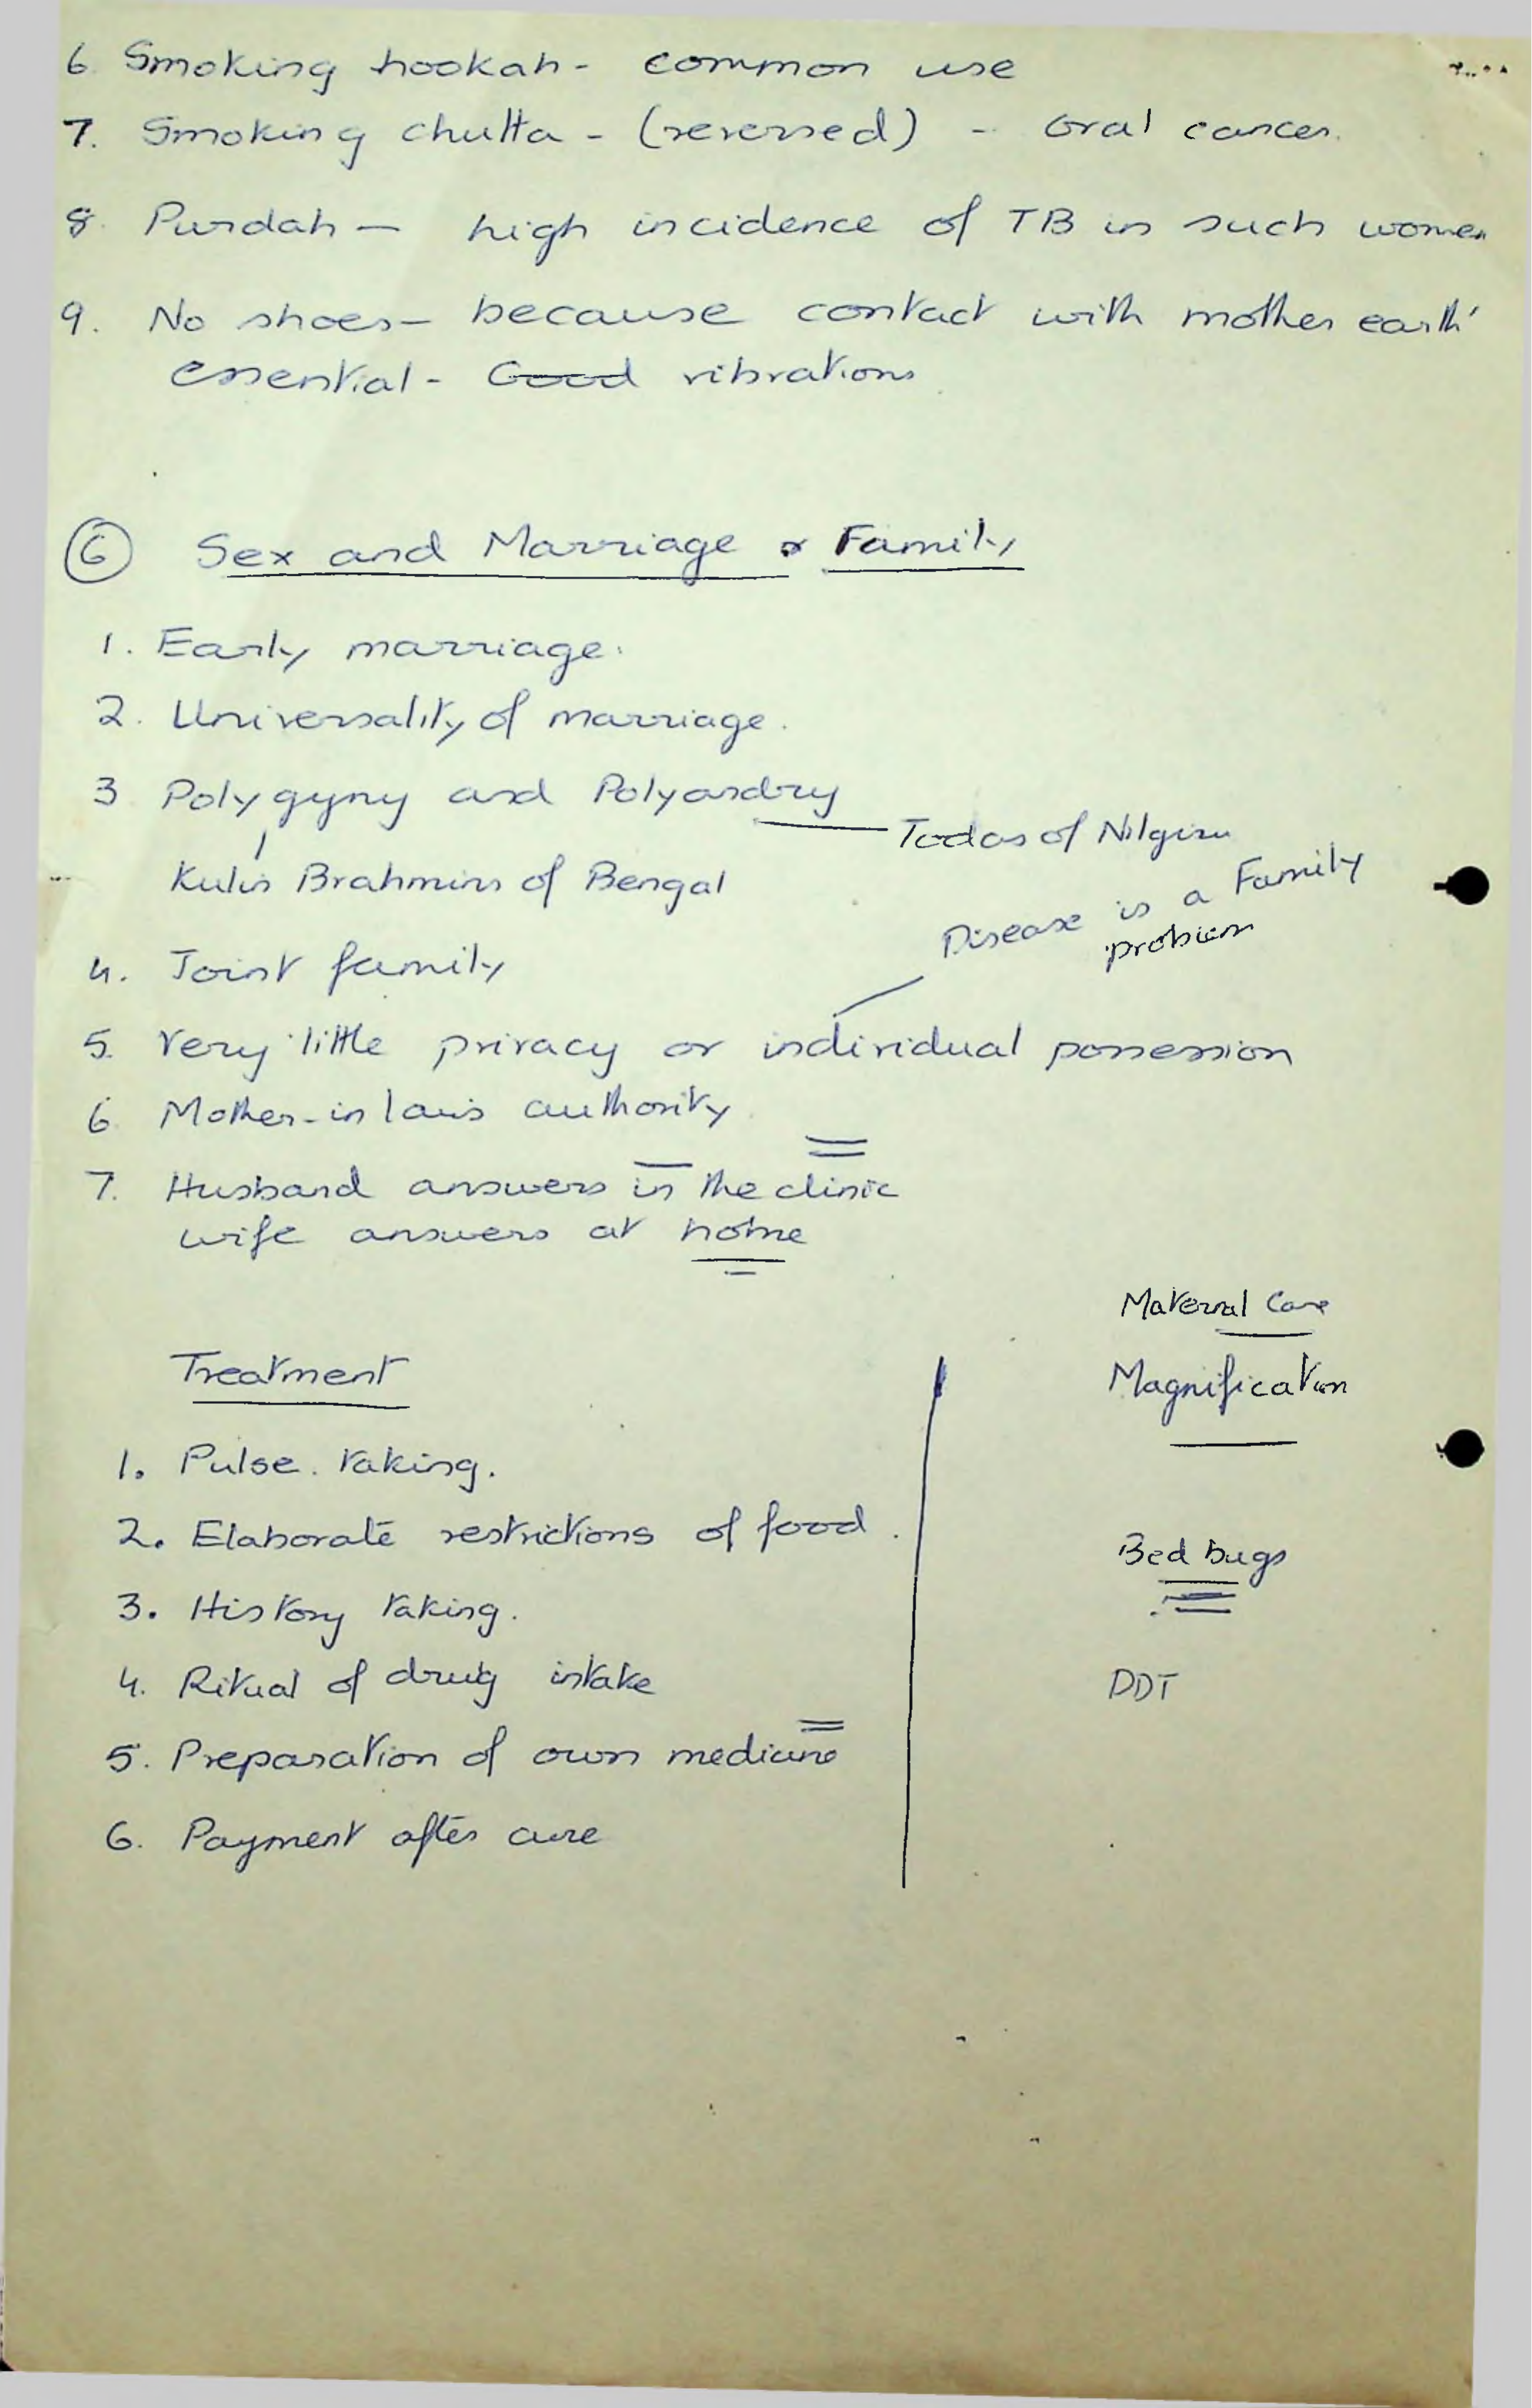 6. Smoking hookah - common use
7. Smoking chutta - (reversed) - Oral cancer.
8. Purdah - high incidence of TB in such women
9. No shoes - because contact with mother earth'
essential - Good vibrations
6 Sex and Marriage & Family
1. Early marriage.
2. Universality of marriage.
3 Polygyny and Polyandry
Todas of Nilgiris
Kulin Brahmins of Bengal
Disease is a Family
problem
4. Joint family
5. Very little privacy or individual possession
6. Mother-in laws authority
7. Husband answers in the clinic
wife answers at home
Maternal Care
Treatment
Magnification
1. Pulse taking.
2. Elaborate restrictions of food.
Bed bugs
3. History taking.
4. Ritual of drug intake
DDT
5. Preparation of own medicine
6. Payment after cure